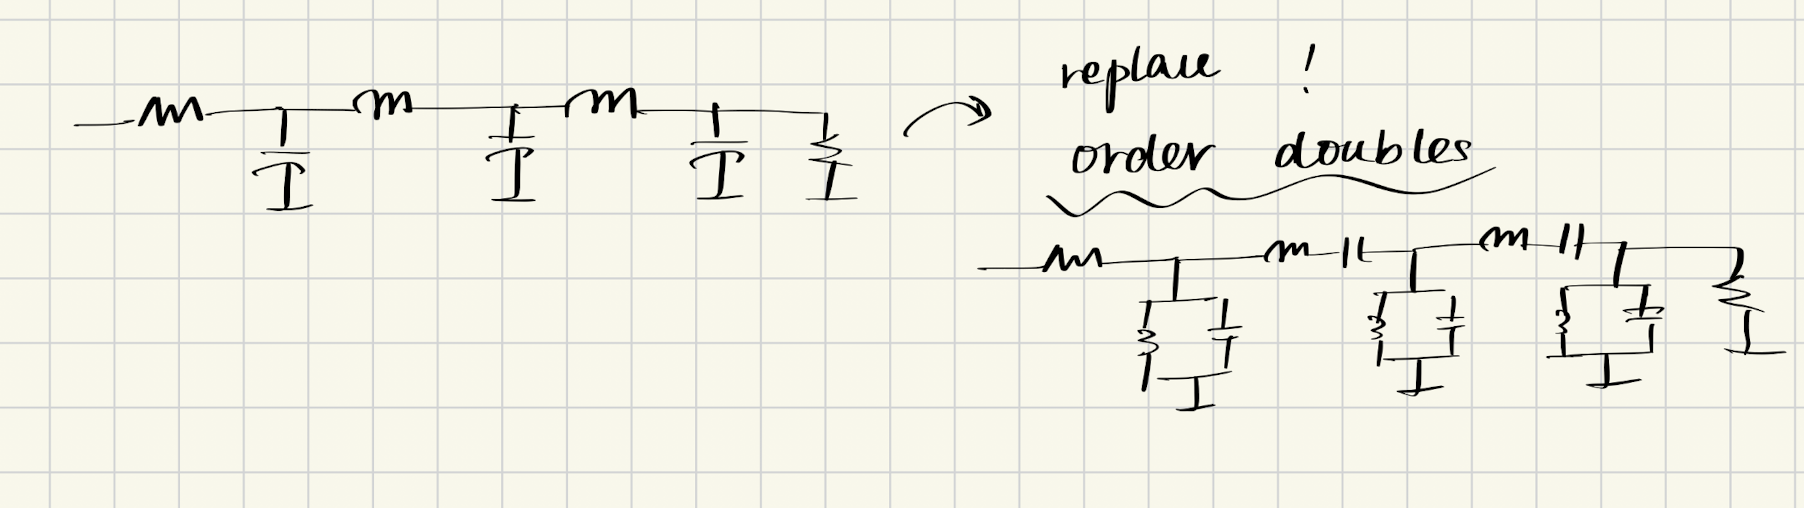 replace !
order doubles